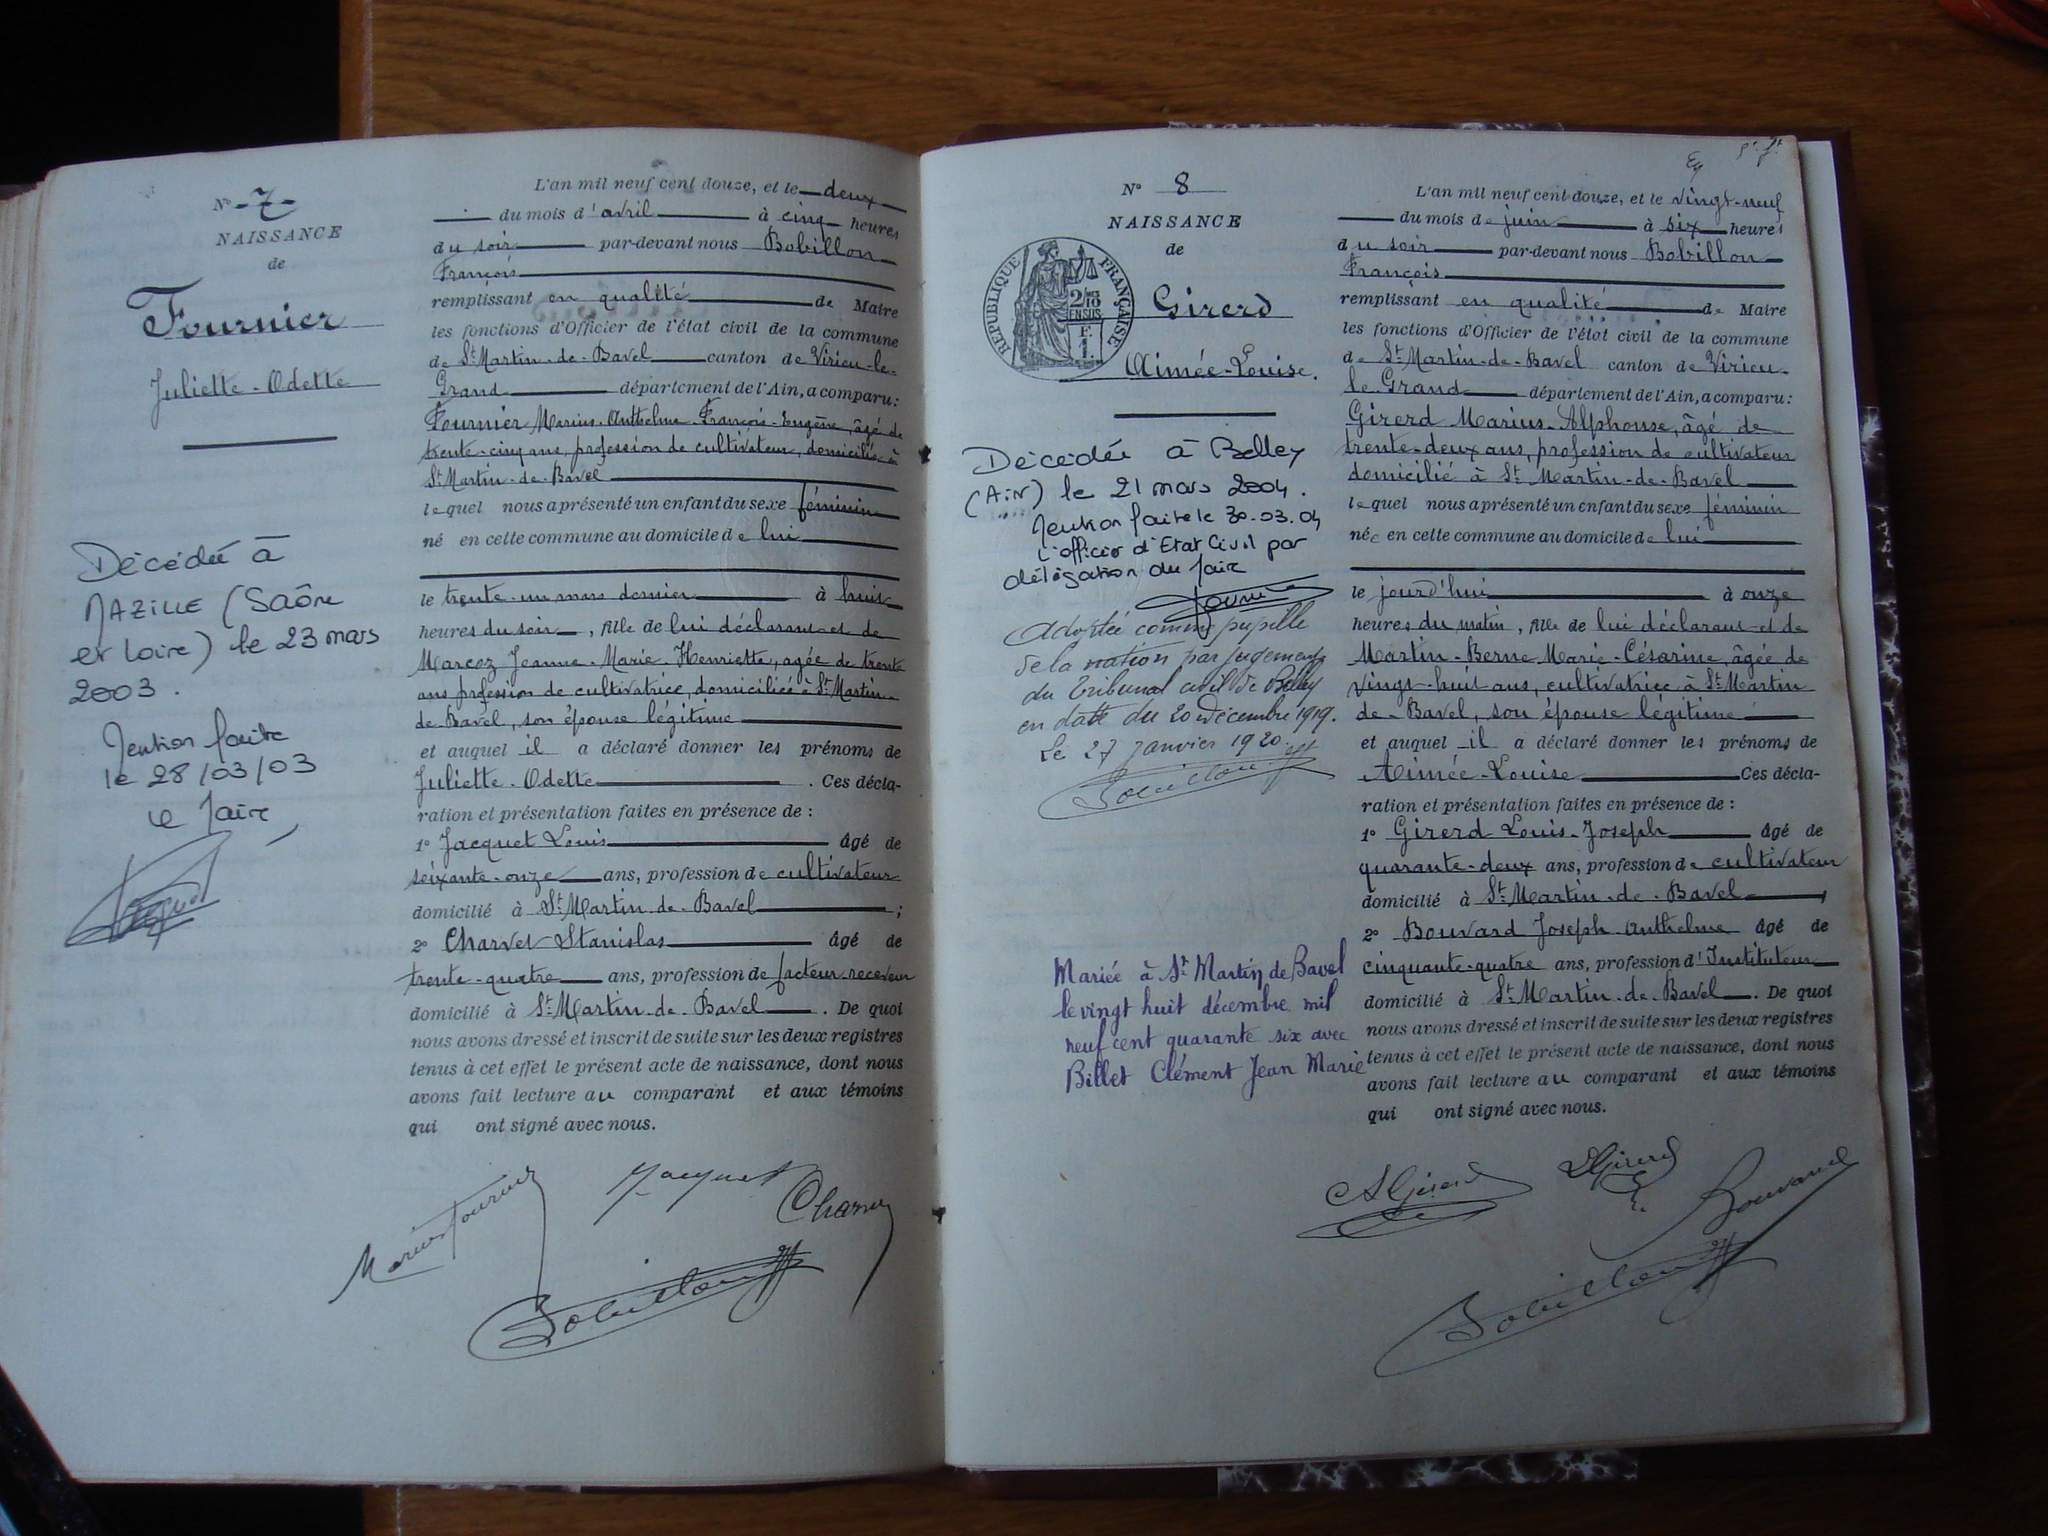 N° 7
NAISSANCE
de
Fournier
Juliette-Odette
Décédée à
MAZILLE (Saône
et Loire) le 23 mars
2003.
Mention faite
le 28/03/03
Le Maire,
L'an mil neuf cent douze, et le deux
du mois d'avril à cinq heures
du soir par-devant nous Bobillon
François
remplissant en qualité de Maire
les fonctions d'Officier de l'état civil de la commune
de St Martin-de-Bavel canton de Virieu-le-
Grand département de l'Ain, a comparu:
Fournier Marius-Anthelme-François-Eugène, âgé de
trente-cinq ans, profession de cultivateur, domicilié à
St Martin-de-Bavel
lequel nous a présenté un enfant du sexe féminin
né en cette commune au domicile de lui
le trente-un mars dernier à huit
heures du soir, fille de lui déclarant et de
Marcoz Jeanne-Marie-Henriette, agée de trente
ans profession de cultivatrice, domiciliée à St Martin-
de-Bavel, son épouse légitime
et auquel il a déclaré donner les prénoms de
Juliette-Odette. Ces décla-
ration et présentation faites en présence de :
1° Jacquet Louis âgé de
soixante-onze ans, profession de cultivateur
domicilié à St Martin-de-Bavel ;
2° Charvet Stanislas âgé de
trente-quatre ans, profession de facteur-receveur
domicilié à St Martin-de-Bavel. De quoi
nous avons dressé et inscrit de suite sur les deux registres
tenus à cet effet le présent acte de naissance, dont nous
avons fait lecture au comparant et aux témoins
qui ont signé avec nous.
Marius Fournier
Jacquet
Charvet
Bobillon
N° 8
NAISSANCE
de
RÉPUBLIQUE FRANÇAISE
2/10
EN SUS
Girerd
Aimée-Louise.
Décédée à Belley
(Ain) le 21 mars 2004.
Mention faite le 30.03.04
L'officier d'Etat Civil par
délégation du Maire
Adoptée comme pupille
de la nation par jugement
du Tribunal civil de Belley
en date du 20 Décembre 1919.
Le 27 Janvier 1920.
Bobillon
Mariée à St Martin de Bavel
le vingt huit décembre mil
neuf cent quarante six avec
Billet Clément Jean Marie
L'an mil neuf cent douze, et le vingt-neuf
du mois de juin à six heures
du soir par-devant nous Bobillon
François
remplissant en qualité de Maire
les fonctions d'Officier de l'état civil de la commune
de St Martin-de-Bavel canton de Virieu-
le Grand département de l'Ain, a comparu:
Girerd Marius-Alphonse, âgé de
trente-deux ans, profession de cultivateur
domicilié à St Martin-de-Bavel
lequel nous a présenté un enfant du sexe féminin
née en cette commune au domicile de lui
le jourd'hui à onze
heures du matin, fille de lui déclarant et de
Martin-Berne Marie-Césarine, âgée de
vingt-huit ans, cultivatrice à St Martin
de-Bavel, son épouse légitime
et auquel il a déclaré donner les prénoms de
Aimée-Louise Ces décla-
ration et présentation faites en présence de :
1° Girerd Louis-Joseph âgé de
quarante-deux ans, profession de cultivateur
domicilié à St Martin-de-Bavel ,
2° Bouvard Joseph-Anthelme âgé de
cinquante-quatre ans, profession d'Instituteur
domicilié à St Martin-de-Bavel. De quoi
nous avons dressé et inscrit de suite sur les deux registres
tenus à cet effet le présent acte de naissance, dont nous
avons fait lecture au comparant et aux témoins
qui ont signé avec nous.
AGirerd
LGirerd
Bouvard
Bobillon